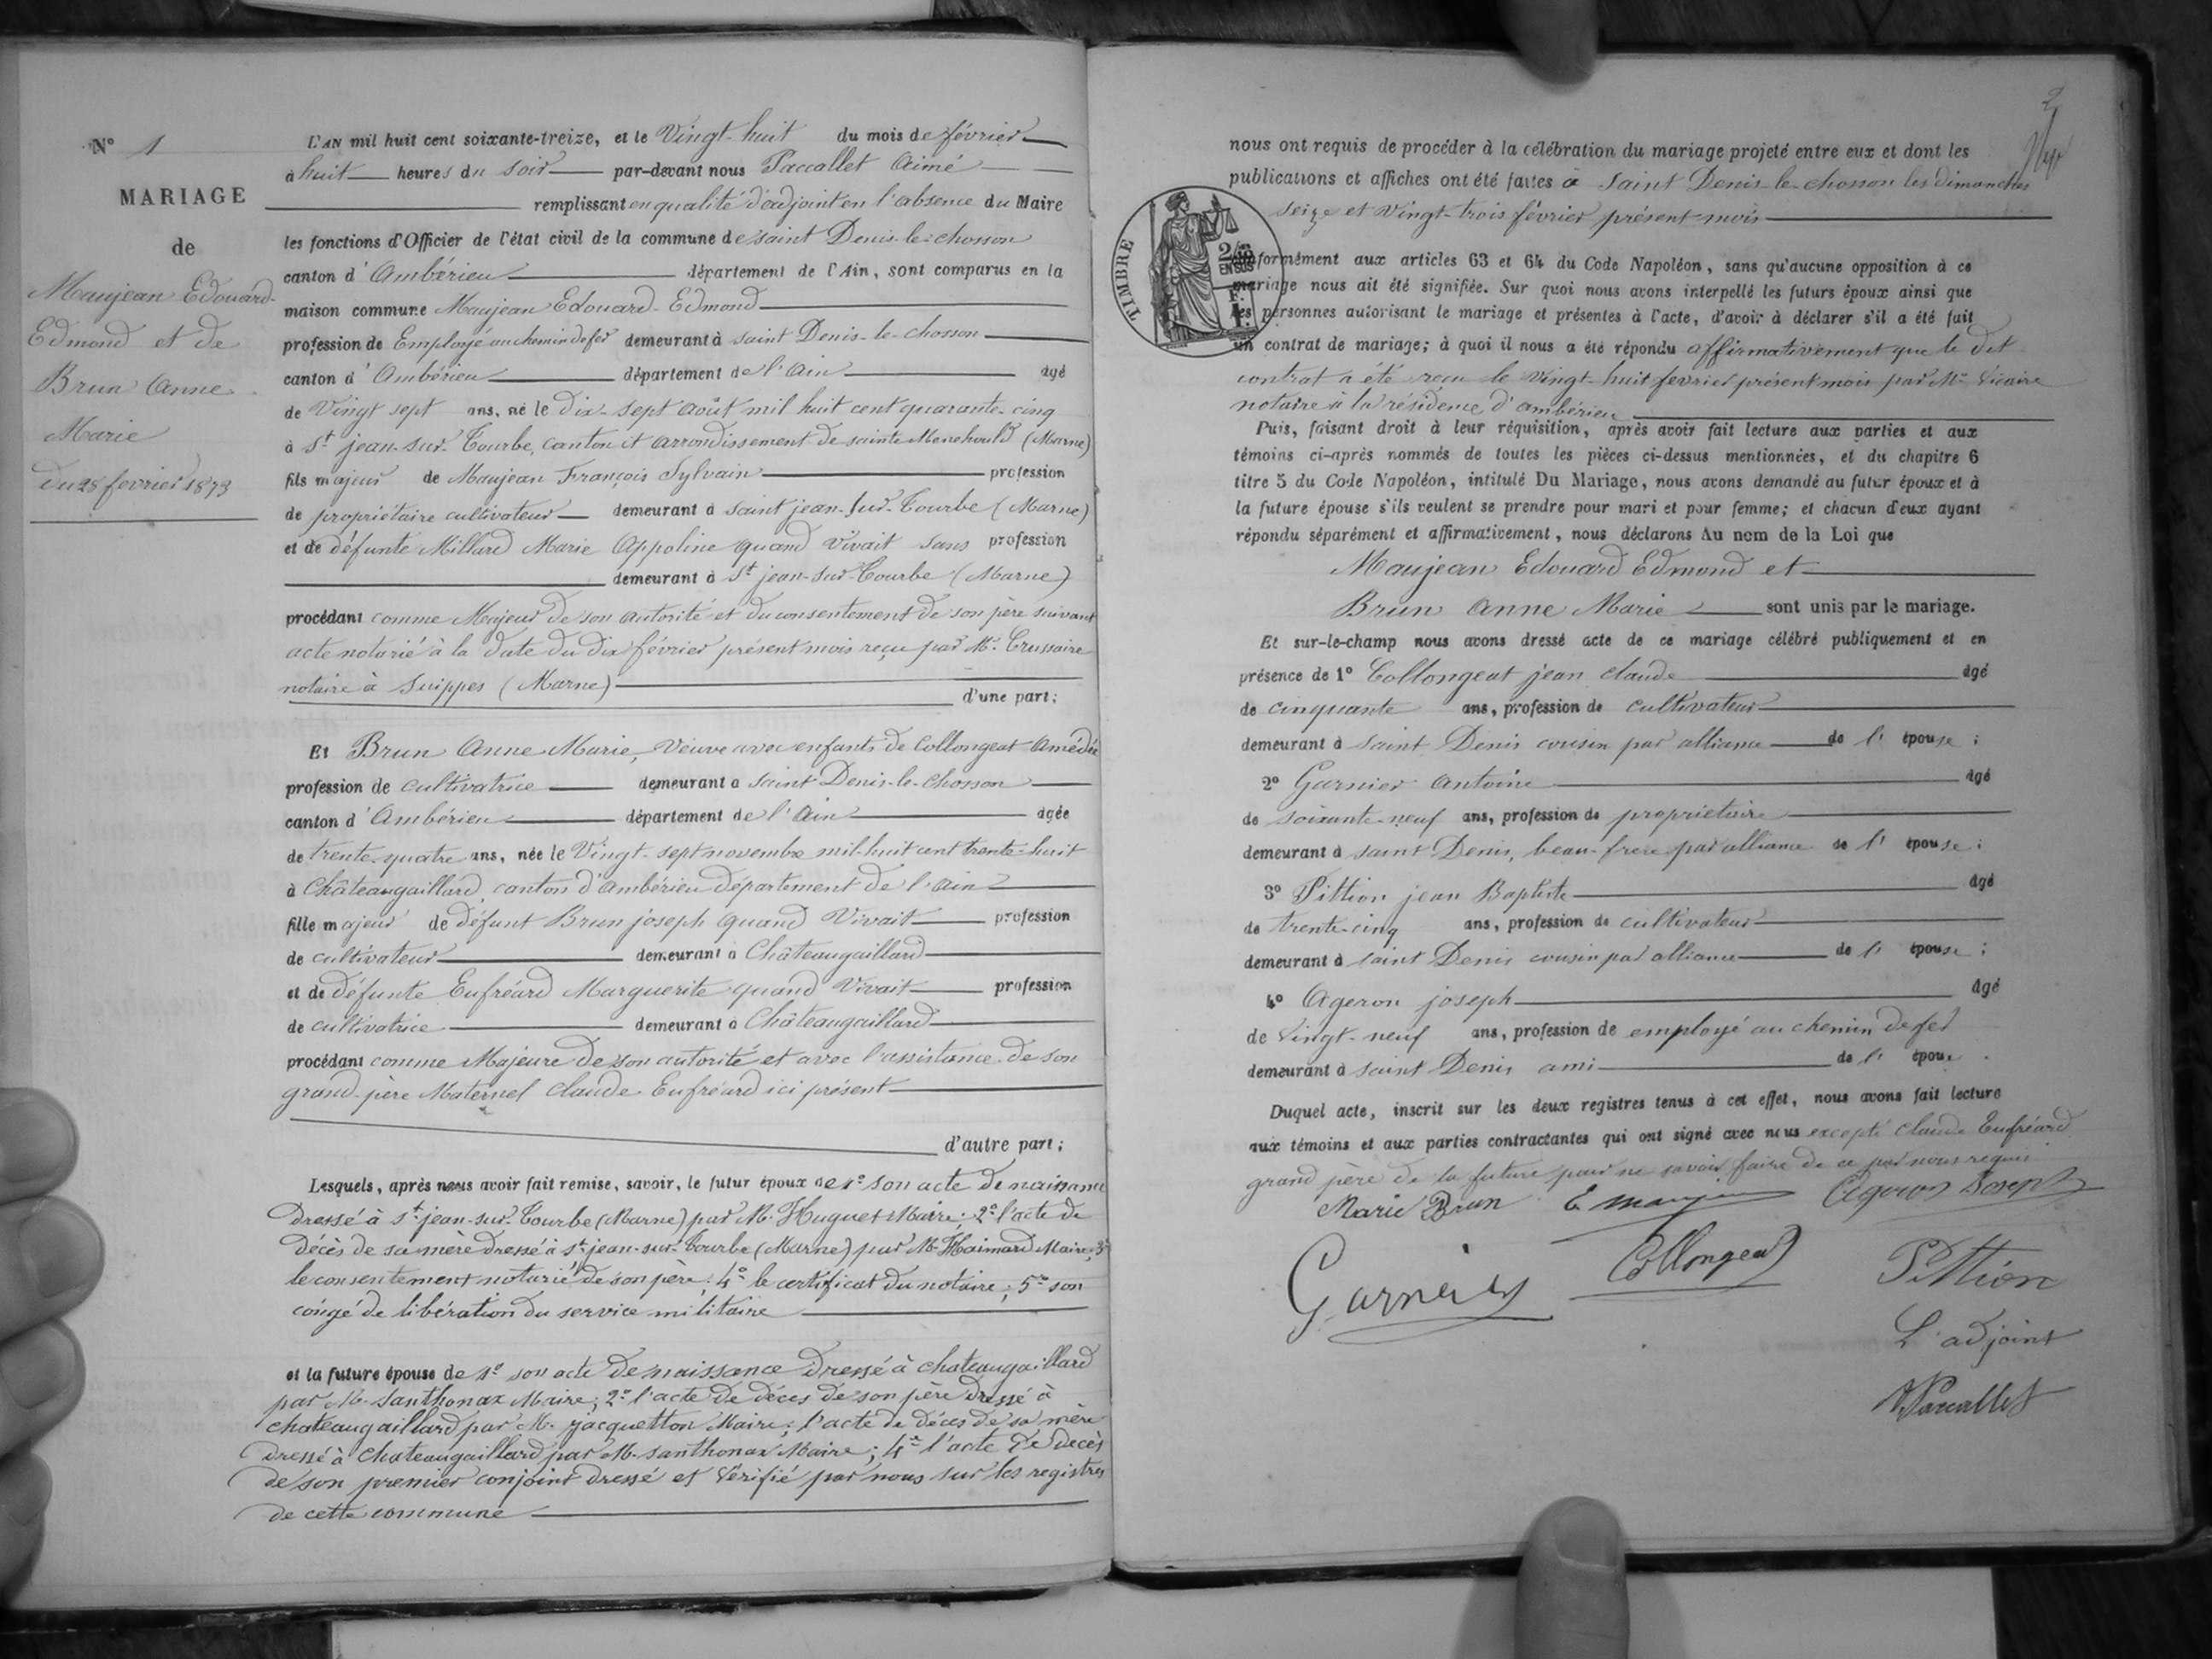 N° 1
MARIAGE
de
Maujean Edouard-
Edmond et de
Brun Anne
Marie
du 28 fevrier 1873
L'AN mil huit cent soixante-treize, et le Vingt-huit du mois de février
à huit heures du soir par-devant nous Paccallet Aimé
remplissant en qualité d'adjoint en l'absence du Maire
les fonctions d'Officier de l'état civil de la commune de saint Denis-le-chosson
canton d'Ambérieu département de l'Ain, sont comparus en la
maison commune Maujean Edouard-Edmond
profession de Employé au chemin de fer demeurant à saint Denis-le-chosson
canton d'Ambérieu département de l'Ain âgé
de Vingt sept ans, né le dix-sept août mil huit cent quarante-cinq
à St jean-sur-Tourbe, canton et arrondissement de sainte Menehould (Marne)
fils majeur de Maujean François Sylvain profession
de propriétaire cultivateur demeurant à saint jean-sur-Tourbe (Marne)
et de défunte Millard Marie Appoline quand Vivait sans profession
demeurant à St jean-sur-Tourbe (Marne)
procédant comme Majeur de son autorité et du consentement de son père suivant
acte notarié à la date du dix février présent mois reçu par Me
notaire à Suippes (Marne)
d'une part;
Et Brun Anne Marie, Veuve avec enfants de Collongeat Amédée
profession de cultivatrice demeurant à saint Denis-le-chosson
canton d'Ambérieu département de l'Ain âgée
de trente-quatre ans, née le Vingt-sept novembre mil-huit cent trente-huit
à Châteaugaillard, canton d'Ambérieu département de l'Ain
fille majeur de défunt Brun joseph quand Vivait profession
de cultivateur demeurant à Châteaugaillard
et de défunte Eufréard Marguerite quand Vivait profession
de cultivatrice demeurant à Châteaugaillard
procédant comme Majeure de son autorité et avec l'assistance de son
grand-père Maternel Claude Eufréard ici présent
d'autre part;
Lesquels, après nous avoir fait remise, savoir, le futur époux de 1° son acte de naissance
dressé à St jean-sur-Tourbe (Marne) par M. Huguet Maire; 2° l'acte de
décès de sa mère dressé à St jean-sur-Tourbe (Marne) par M. Haimard Maire; 3°
le consentement notarié de son père; 4° le certificat du notaire; 5° son
congé de libération du service militaire
et la future épouse de 1° son acte de naissance dressé à chateaugaillard
par M. Santhonax Maire; 2° l'acte de décès de son père dressé à
chateaugaillard par M. jacquetton Maire; l'acte de décès de sa mère
dressé à Chateaugaillard par M. santhonax Maire; 4° l'acte de decès
de son premier conjoint dressé et Vérifié par nous sur les registres
de cette commune
2
nous ont requis de procéder à la célébration du mariage projeté entre eux et dont les
publications et affiches ont été faites à Saint Denis-le-chosson les dimanches
seize et Vingt-trois février présent mois
TIMBRE
2/10 EN SUS
formément aux articles 63 et 64 du Code Napoléon, sans qu'aucune opposition à ce
mariage nous ait été signifiée. Sur quoi nous avons interpellé les futurs époux ainsi que
les personnes autorisant le mariage et présentes à l'acte, d'avoir à déclarer s'il a été fait
un contrat de mariage; à quoi il nous a été répondu affirmativement que le dit
contrat a été reçu le Vingt-huit fevrier présent mois par Me Vicaire
notaire à la résidence d'ambérieu
Puis, faisant droit à leur réquisition, après avoir fait lecture aux parties et aux
témoins ci-après nommés de toutes les pièces ci-dessus mentionnées, et du chapitre 6
titre 5 du Code Napoléon, intitulé Du Mariage, nous avons demandé au futur époux et à
la future épouse s'ils veulent se prendre pour mari et pour femme; et chacun d'eux ayant
répondu séparément et affirmativement, nous déclarons Au nom de la Loi que
Maujean Edouard Edmond et
Brun Anne Marie sont unis par le mariage.
Et sur-le-champ nous avons dressé acte de ce mariage célébré publiquement et en
présence de 1° Collongeat jean claude âgé
de cinquante ans, profession de cultivateur
demeurant à saint Denis cousin par alliance de l'épouse;
2° Garnier Antoine âgé
de soixante-neuf ans, profession de propriétaire
demeurant à saint Denis, beau-frere par alliance de l'épouse;
3° Pittion jean Baptiste âgé
de trente-cinq ans, profession de cultivateur
demeurant à saint Denis cousin par alliance de l'épouse;
4° Ageron joseph âgé
de Vingt-neuf ans, profession de employé au chemin de fer
demeurant à saint Denis ami de l'époux.
Duquel acte, inscrit sur les deux registres tenus à cet effet, nous avons fait lecture
aux témoins et aux parties contractantes qui ont signé avec nous excepté Claude Eufréard
grand père de la future pour ne savoir faire de ce par nous requis
Marie Brun E maujean Ageron Joseph
Garnier Collongeat Pittion
L'adjoint
Paccallet